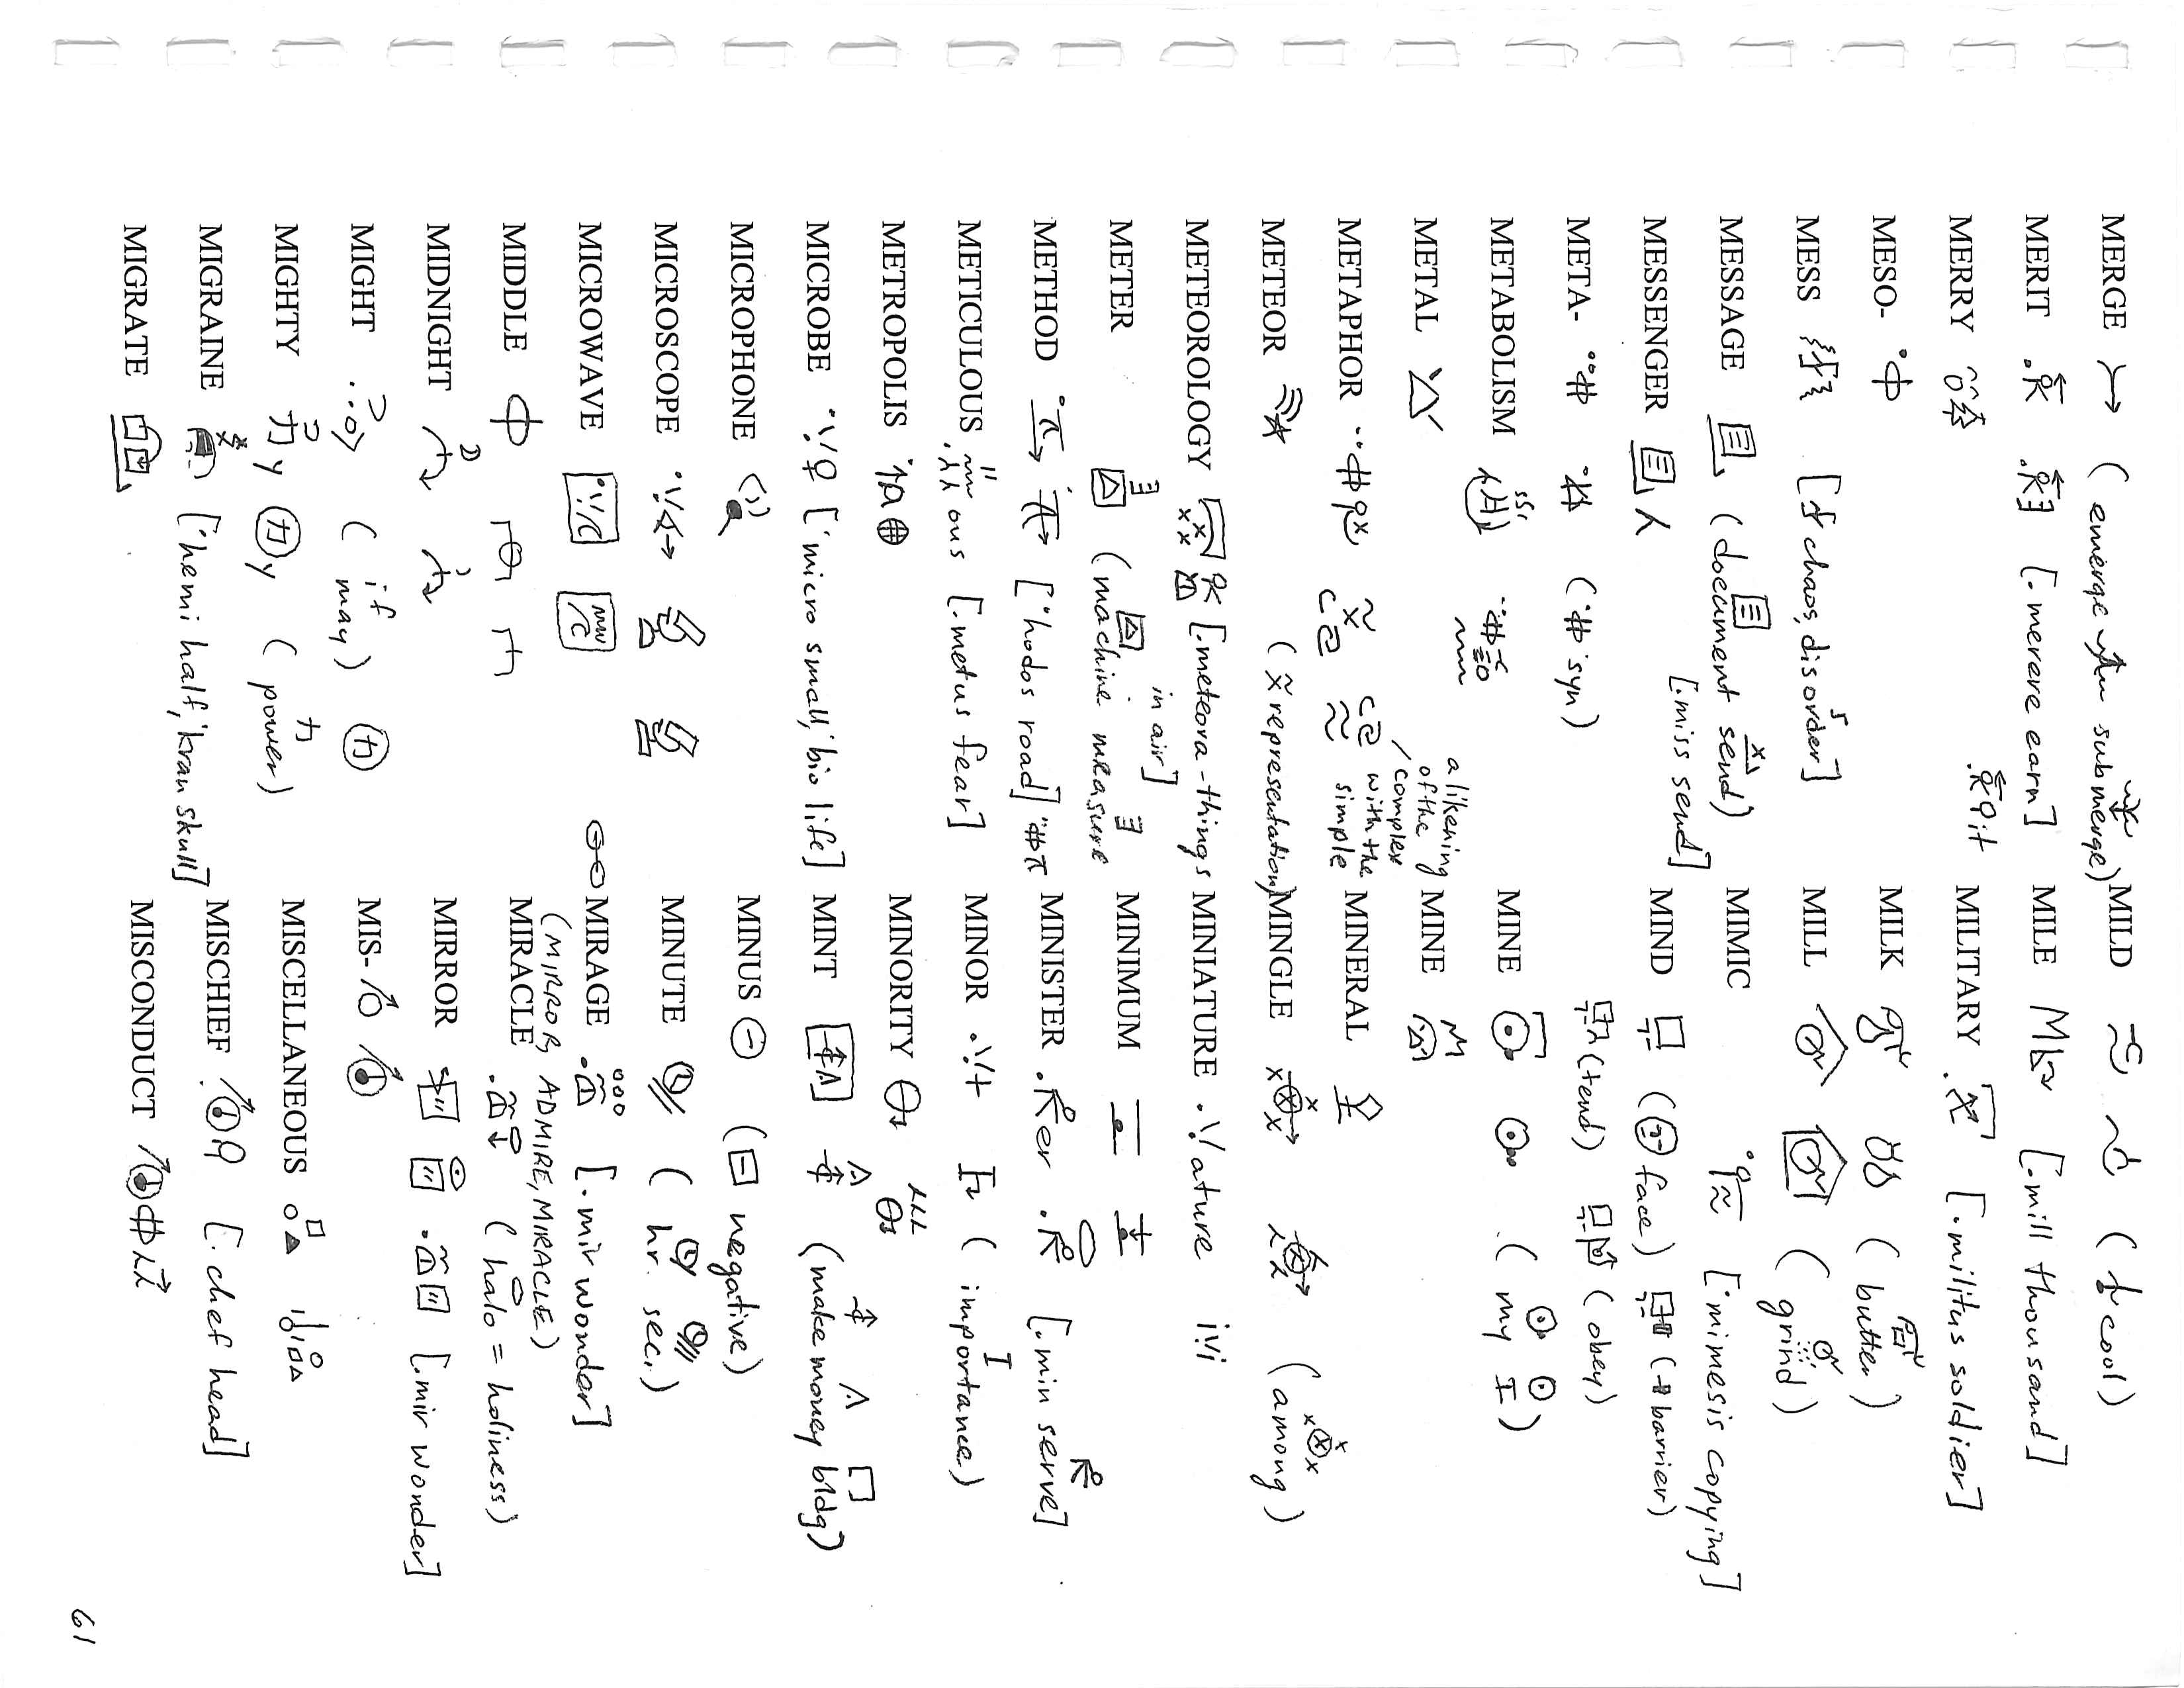 MERGE (emerge submerge)
MERIT [.merere earn]
MERRY
MESO-
MESS [chaos, disorder]
MESSAGE (document send)
MESSENGER [.miss send]
META- (syn)
METABOLISM
METAL
METAPHOR a likening of the complex with the simple
METEOR (representation)
METEOROLOGY [.meteora-things in air]
METER (machine measure)
METHOD ['hodos road]
METICULOUS ous [.metus fear]
METROPOLIS
MICROBE ['micro small, 'bio life]
MICROPHONE
MICROSCOPE
MICROWAVE
MIDDLE
MIDNIGHT
MIGHT (if may)
MIGHTY y y (power)
MIGRAINE ['hemi half, 'kran skull]
MIGRATE
MILD (cool)
MILE M [.mill thousand]
MILITARY [.militus soldier]
MILK (butter)
MILL (grind)
MIMIC ['mimesis copying]
MIND (face) (barrier)
(tend) (obey)
MINE (my I)
MINE
MINERAL
MINGLE (among)
MINIATURE ature
MINIMUM
MINISTER er [.min serve]
MINOR (importance)
MINORITY
MINT (make money bldg)
MINUS (negative)
MINUTE (hr. sec.)
MIRAGE [.mir wonder]
(MIRROR, ADMIRE, MIRACLE)
MIRACLE (halo = holiness)
MIRROR [.mir wonder]
MIS-
MISCELLANEOUS
MISCHIEF [.chef head]
MISCONDUCT
61